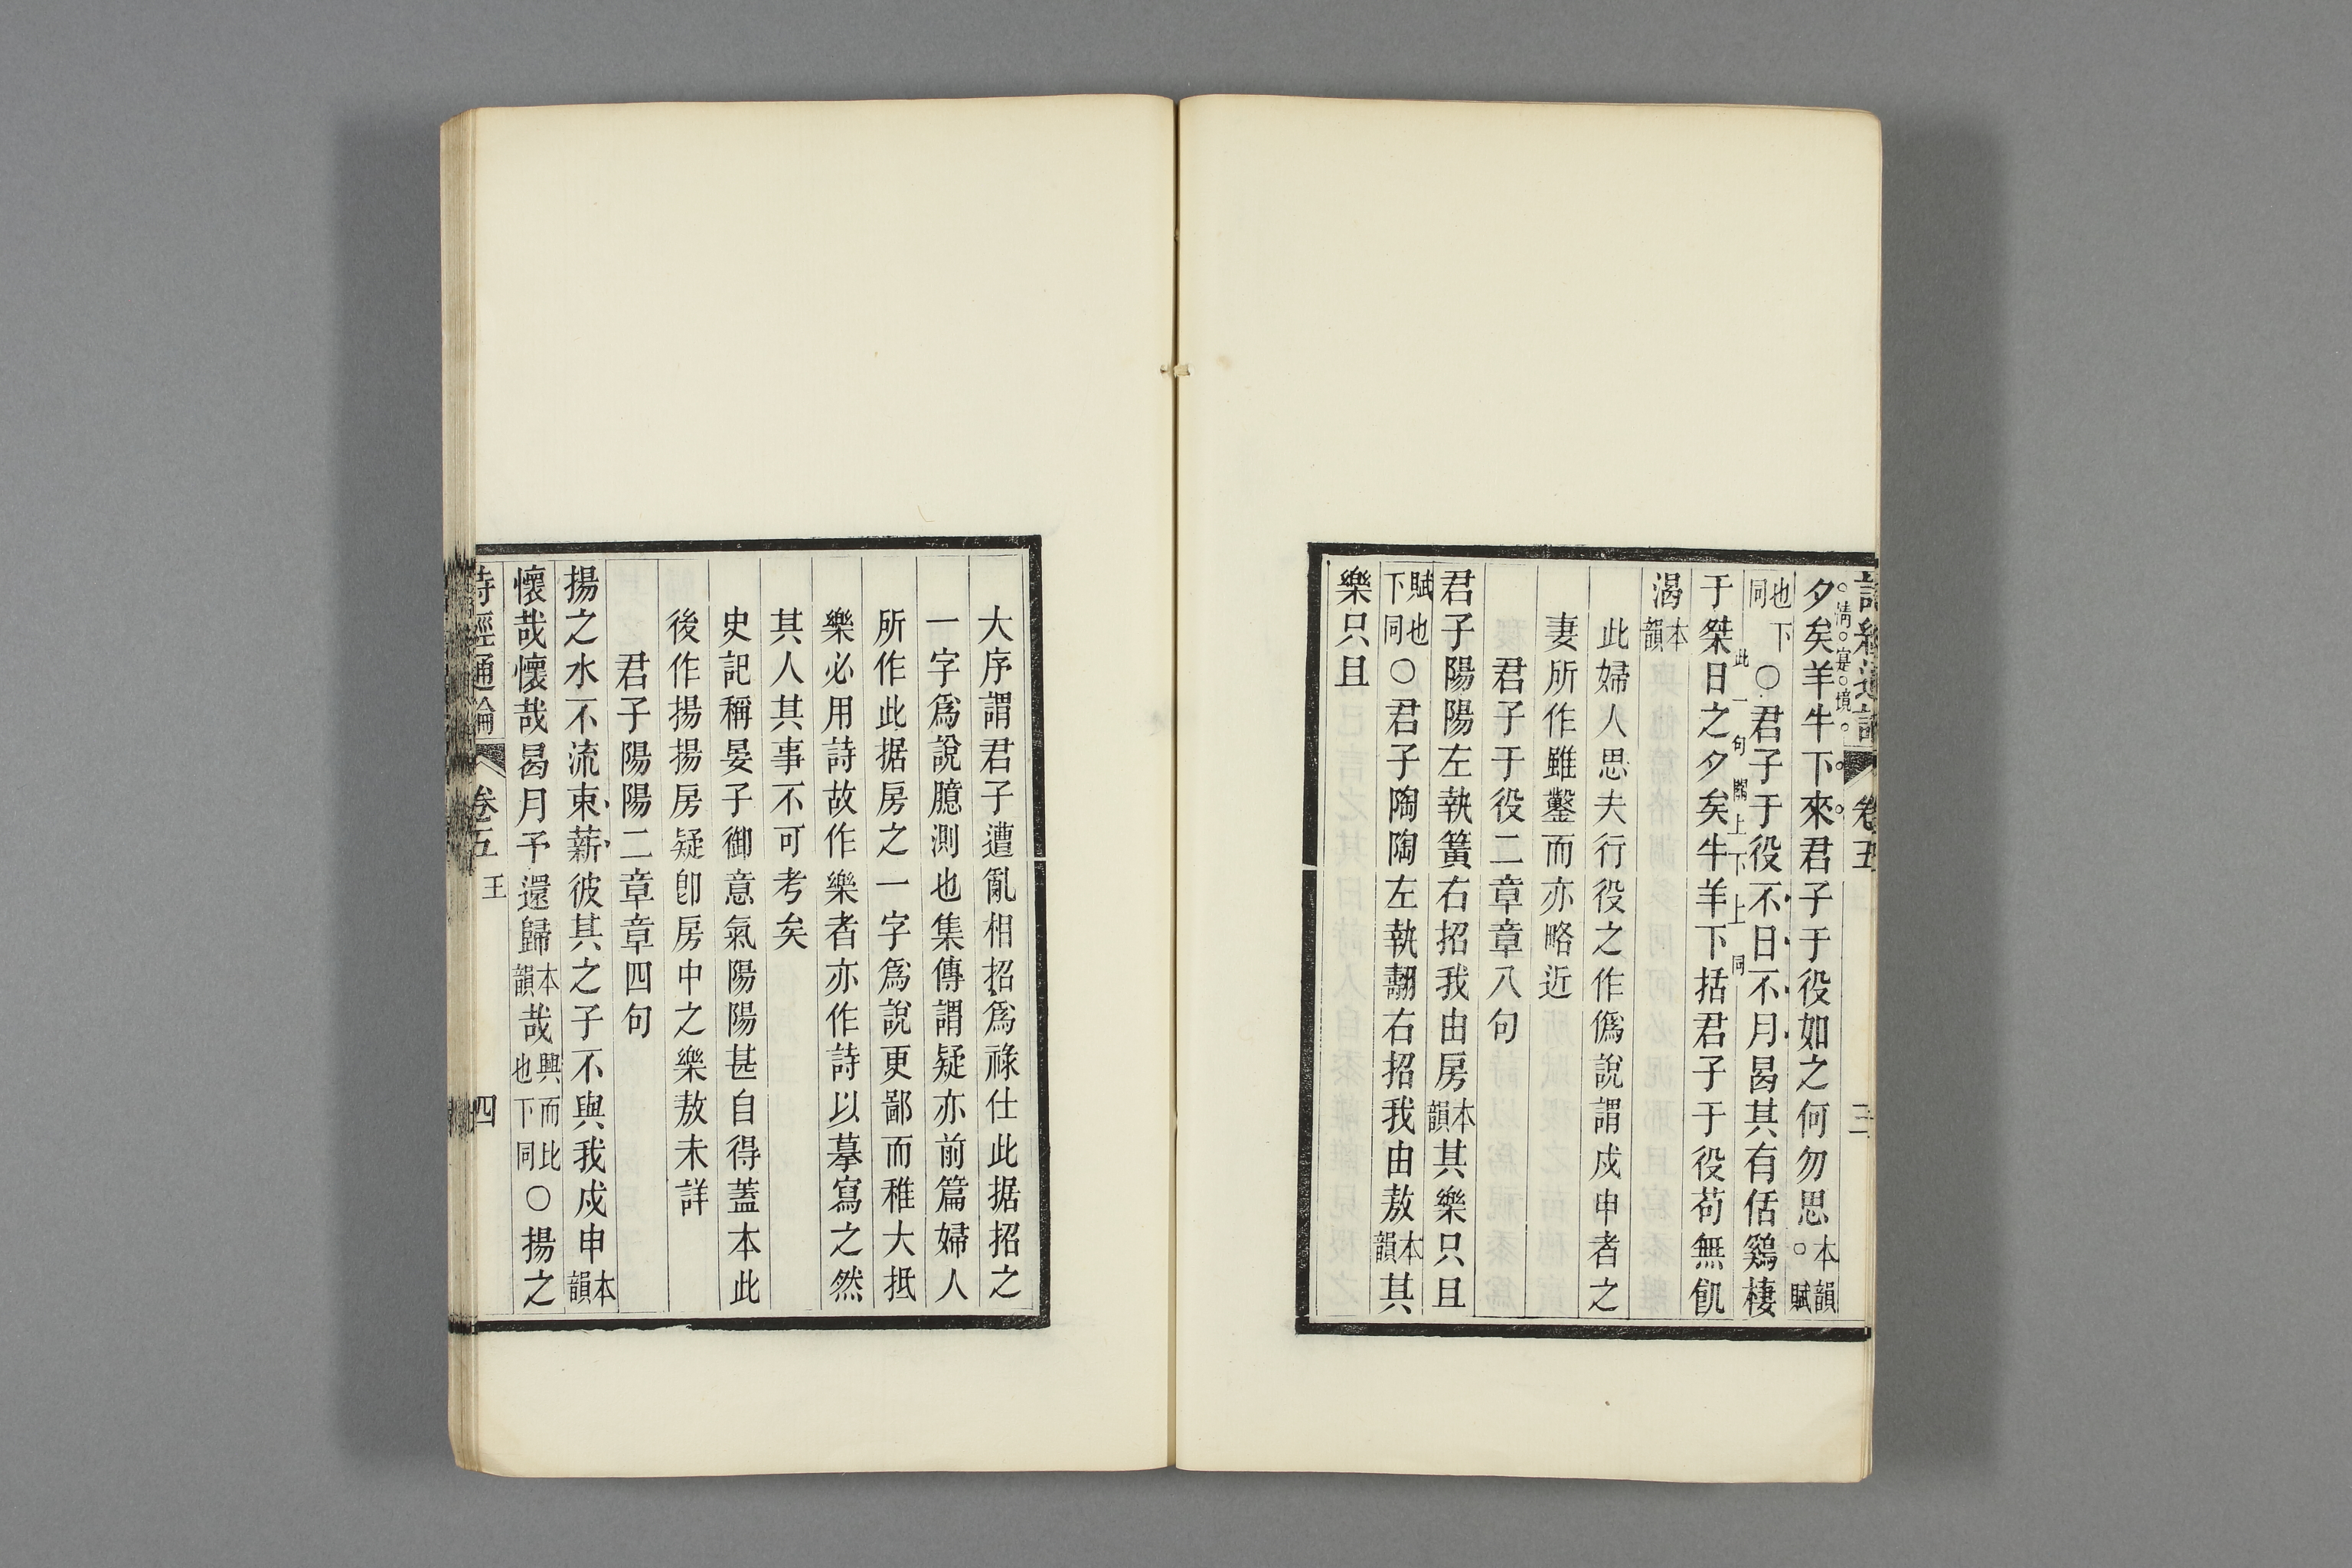 詩經通論 卷五 三
夕矣羊牛下來君子于役如之何勿思本韻○賦
淸寔境
也下同○君子于役不日不月曷其有佸鷄棲
于桀日之夕矣牛羊下括君子于役苟無飢
此一句關上下上同
渴本韻
此婦人思夫行役之作僞說謂戍申者之
妻所作雖鑿而亦略近
君子于役二章章八句
君子陽陽左執簧右招我由房本韻其樂只且
賦也下同○君子陶陶左執翿右招我由敖本韻其
樂只且
大序謂君子遭亂相招爲祿仕此据招之
一字爲說臆測也集傳謂疑亦前篇婦人
所作此据房之一字爲說更鄙而稚大抵
樂必用詩故作樂者亦作詩以摹寫之然
其人其事不可考矣
史記稱晏子御意氣陽陽甚自得蓋本此
後作揚揚房疑卽房中之樂敖未詳
君子陽陽二章章四句
揚之水不流束薪彼其之子不與我戍申本韻
懷哉懷哉曷月予還歸本韻哉興而比也下同○揚之
詩經通論 卷五 王 四